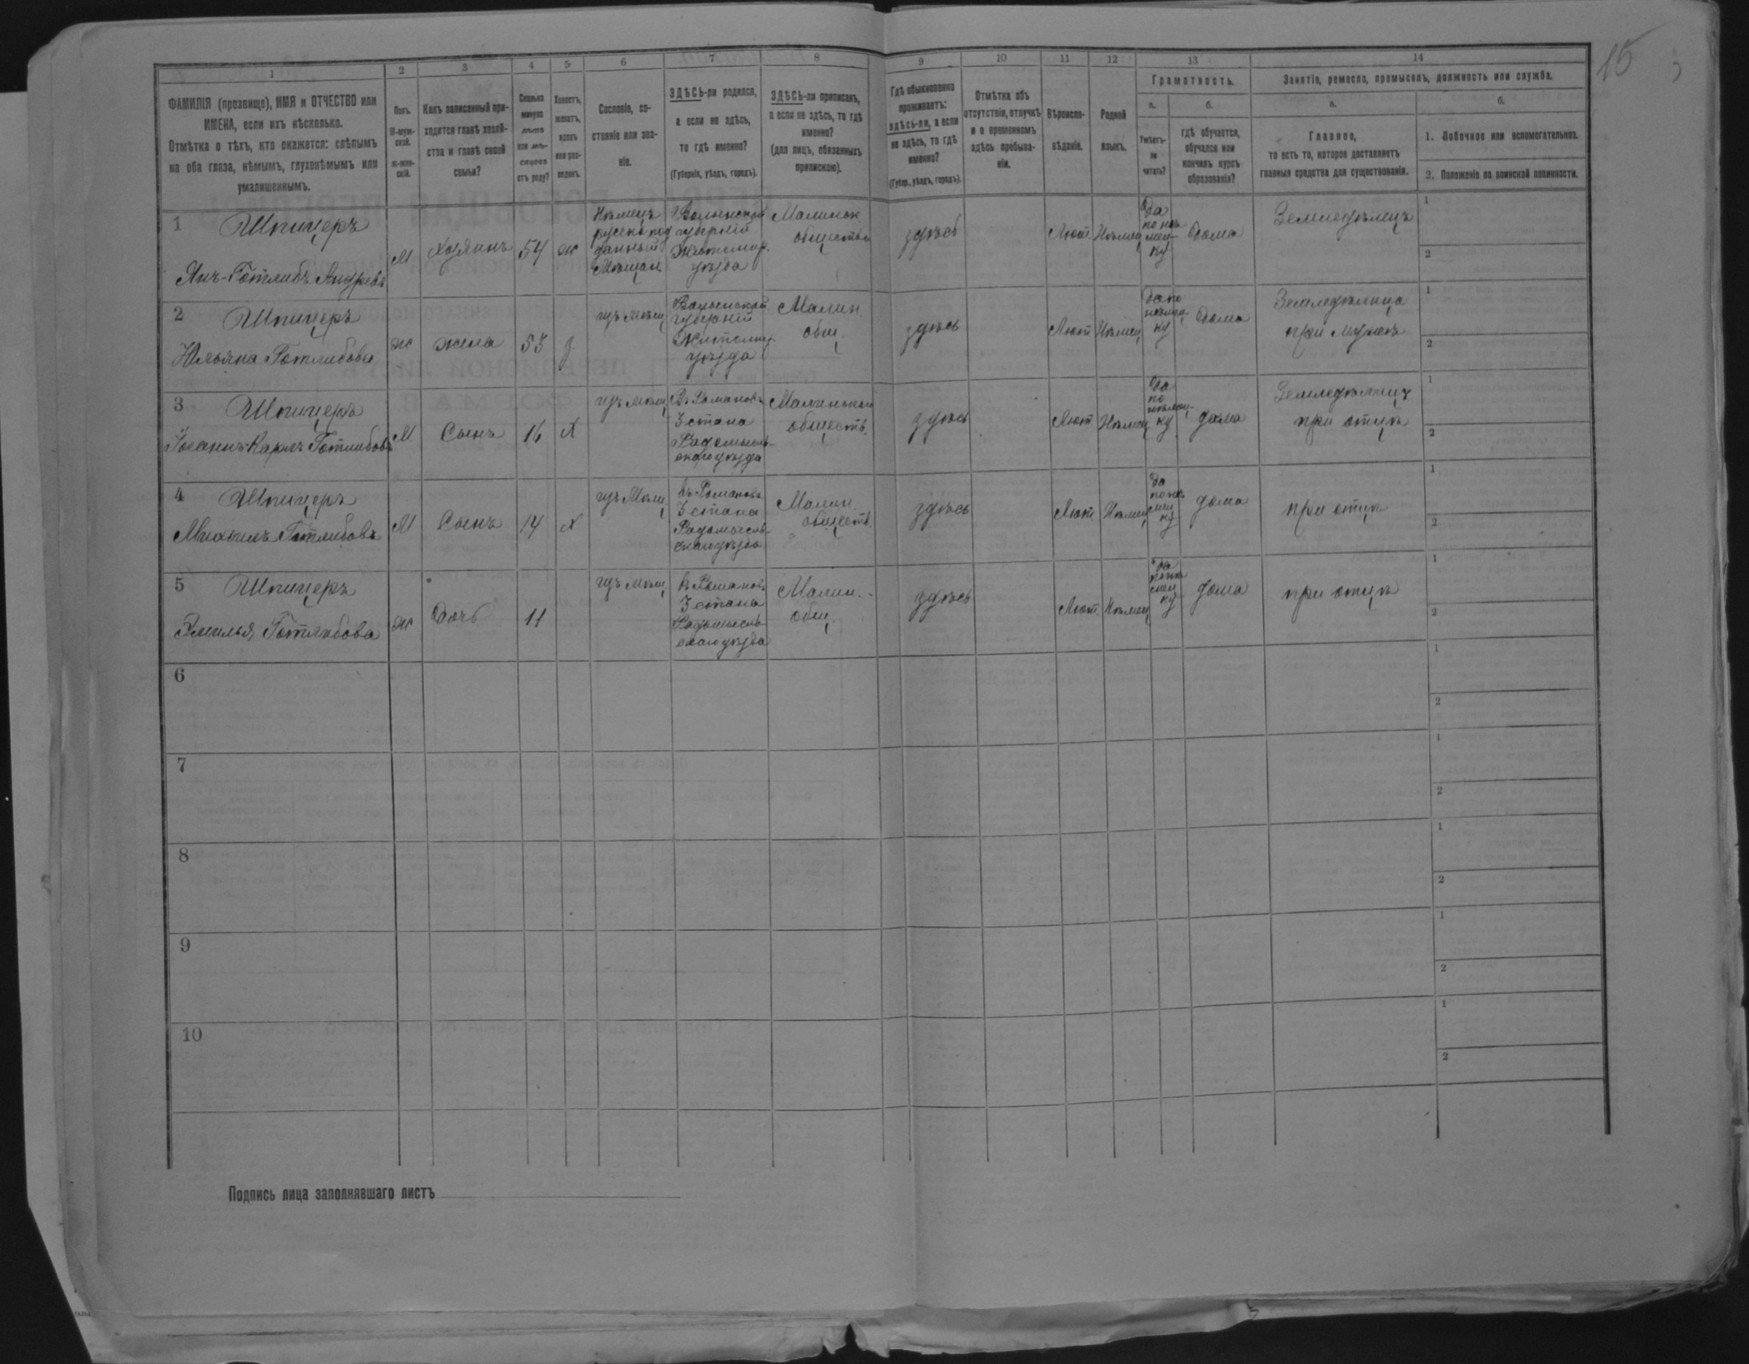 15
1 2 3 4 5 6 7 8 9 10 11 12 13 14
ФАМИЛІЯ (прозвище), ИМЯ и ОТЧЕСТВО или
ИМЕНА, если ихъ нѣсколько.
Отмѣтка о тѣхъ, кто окажется: слѣпымъ
на оба глаза, нѣмымъ, глухонѣмымъ или
умалишеннымъ.
Полъ.
М-муж-
ской.
ж-жен-
скій.
Какъ записанный при-
ходится главѣ хозяй-
ства и главѣ своей
семьи?
Сколько
минуло
лѣтъ
или мѣ-
сяцевъ
отъ роду?
Холостъ,
женатъ,
вдовъ
или раз-
веденъ.
Сословіе, со-
стояніе или зва-
ніе.
ЗДѢСЬ-ли родился,
а если не здѣсь,
то гдѣ именно?
(Губернія, уѣздъ, городъ).
ЗДѢСЬ-ли приписанъ,
а если не здѣсь, то гдѣ
именно?
(для лицъ, обязанныхъ
припискою).
Гдѣ обыкновенно
проживаетъ:
здѣсь-ли, а если
не здѣсь, то гдѣ
именно?
(Губер., уѣздъ, городъ).
Отмѣтка объ
отсутствіи, отлучкѣ
и о временномъ
здѣсь пребыва-
ніи.
Вѣроиспо-
вѣданіе.
Родной
языкъ.
Грамотность.
а.
Умѣетъ-
ли
читать?
б.
гдѣ обучается,
обучался или
кончилъ курсъ
образованія?
Занятіе, ремесло, промыселъ, должность или служба.
а.
Главное,
то есть то, которое доставляетъ
главныя средства для существованія.
б.
1. Побочное или вспомогательное.
2. Положеніе по воинской повинности.
1
Шпицеръ
Янъ-Готлибъ Андреевъ
М
хозяинъ
54
ж
Нѣмецъ
русско под
данный
Мѣщан.
Волынской
губерніи
Житомир.
уѣзда
Малинск
общество
здѣсь
Лют.
Нѣмец
Да
по нѣ
мец-
ку
дома
Земледѣлецъ
1
2
2
Шпицеръ
Юльяна Готлибова
ж
жена
53
з
изъ мѣщ
Волынской
губерніи
Житомир.
уѣзда
Малин
общ.
здѣсь
Лют
Нѣмец
Да по
нѣмец
ку
дома
Земледѣлица
при мужѣ
1
2
3
Шпицеръ
Іоганъ-Карлъ Готлибовъ
М
Сынъ
16
Х
изъ мѣщ
Въ Романовкѣ
3 стана
Радомысль-
скаго уѣзда
Малинское
обществ.
здѣсь
Лют
Нѣмец
Да
по
нѣмец-
ку
дома
Земледѣлецъ
при отцѣ
1
2
4
Шпицеръ
Михаилъ Готлибовъ
М
Сынъ
14
Х
изъ Мѣщ
въ Романовк
3 стана
Радомысль-
скаго уѣзда
Малин
обществ.
здѣсь
Лют
Нѣмец
да
по нѣ
мец
ку
дома
при отцѣ
1
2
5
Шпицеръ
Эмилья Готлибова
ж
Дочь
11
изъ мѣщ
въ Романов
3 стана
Радомысль
скаго уѣзда
Малин.
общ
здѣсь
Лют
Нѣмец
да
по нѣ
мец
ку
дома
при отцѣ
1
2
6
1
2
7
1
2
8
1
2
9
1
2
10
1
2
Подпись лица заполнявшаго листъ